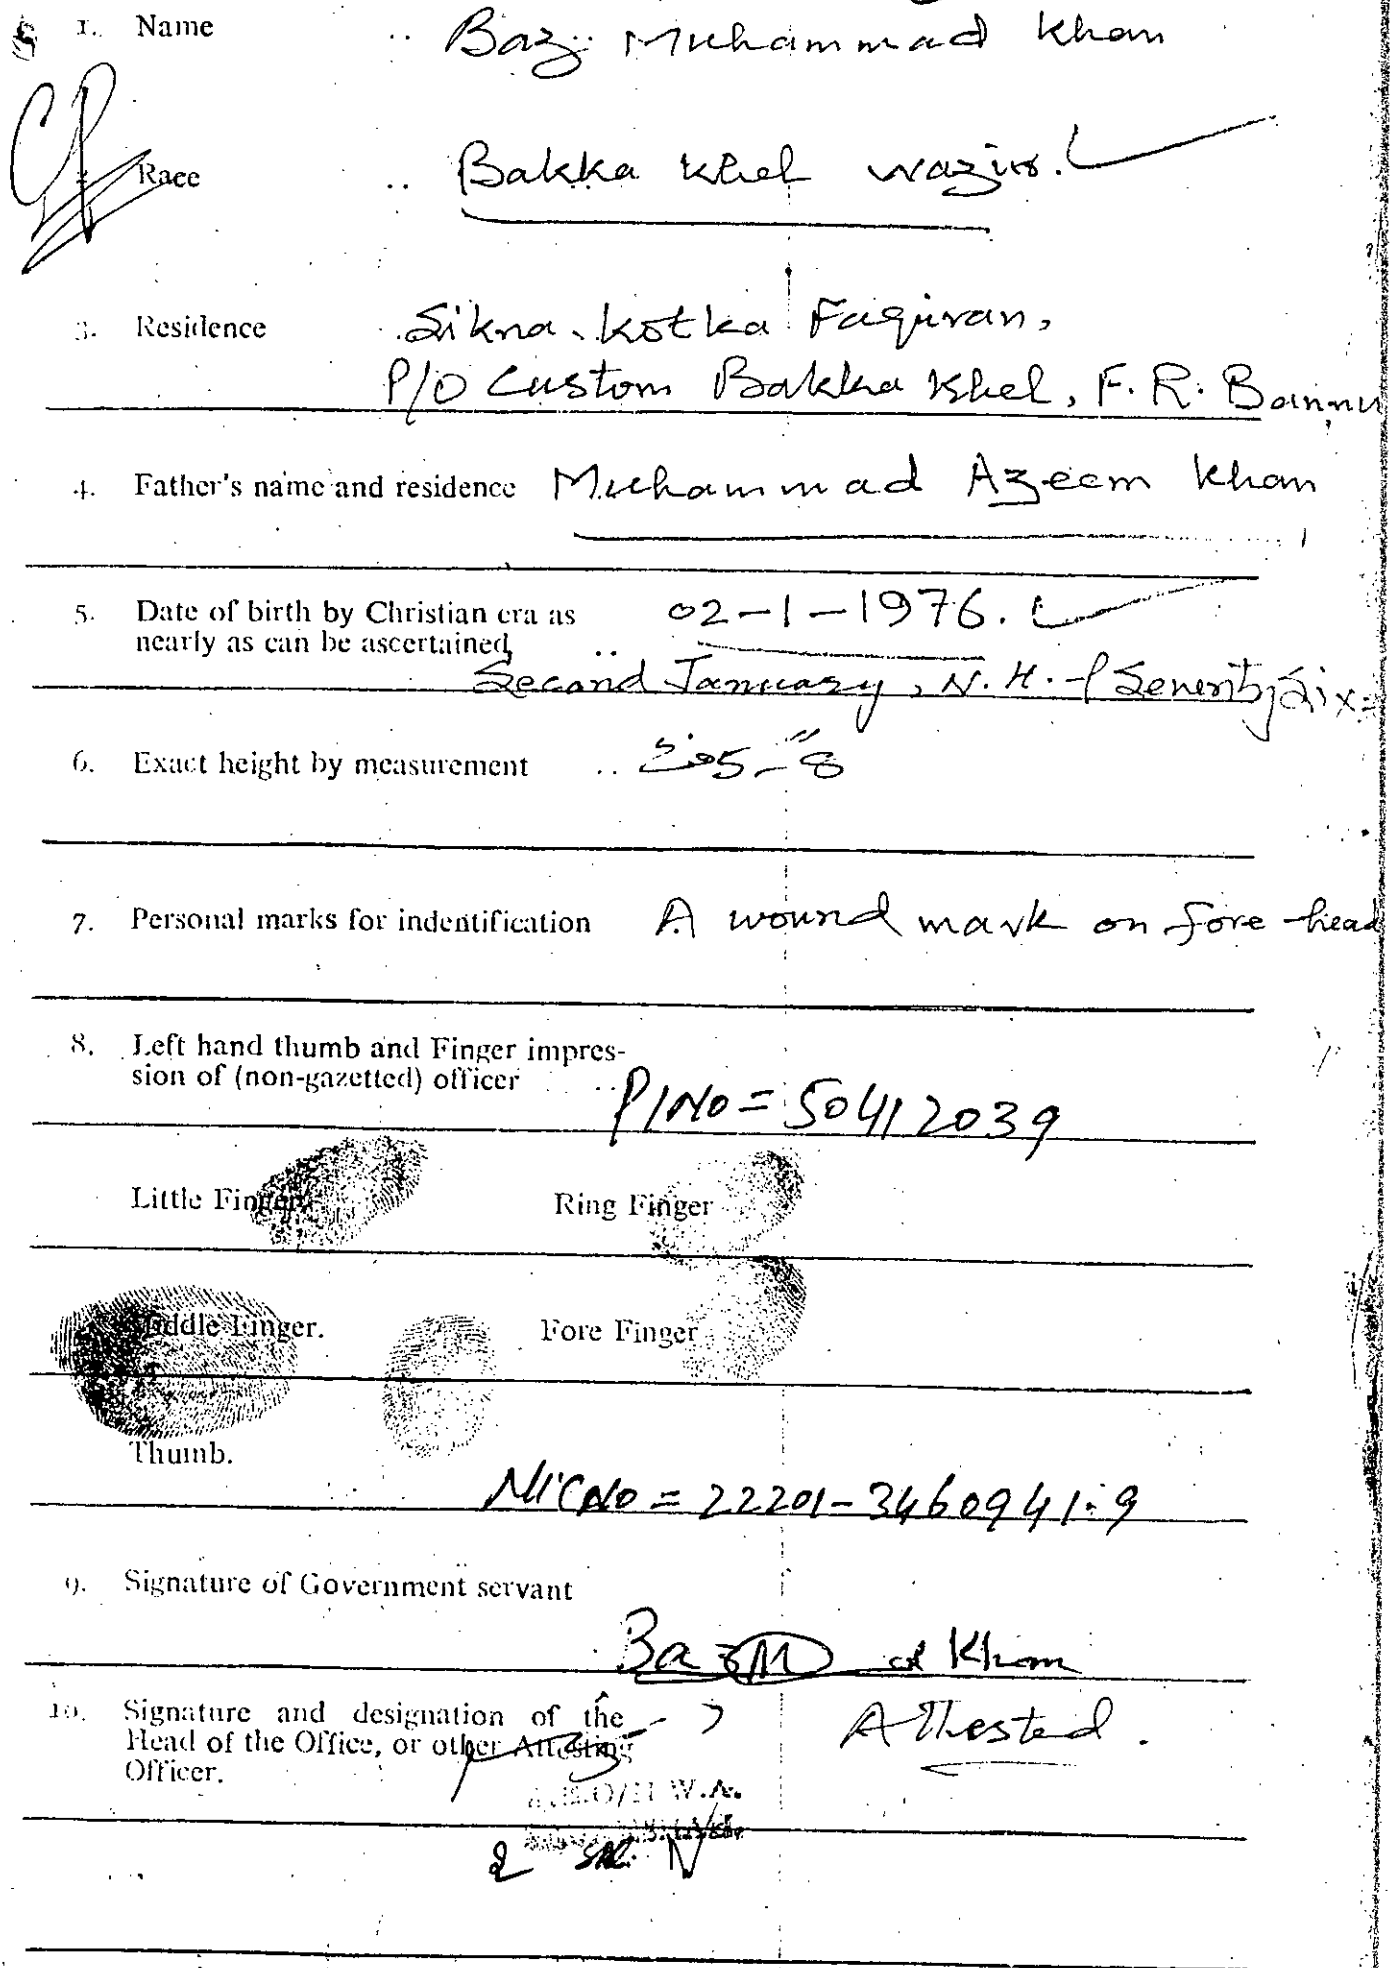 1. Name .. Baz Muhammad Khan
Race .. Bakka Khel Wazir.
3. Residence Sikna Kotka Faqiran,
P/O Custom Bakka Khel, F.R. Bannu
4. Father's name and residence Muhammad Azeem Khan
5. Date of birth by Christian era as 02-1-1976.
nearly as can be ascertained ..
Second January, N.H.
6. Exact height by measurement .. 5-8
7. Personal marks for indentification A wound mark on fore-head
8. Left hand thumb and Finger impres-
sion of (non-gazetted) officer ..
P/No = 50412039
Little Finger Ring Finger
Middle Finger. Fore Finger
Thumb.
NIC No = 22201-3460941-9
9. Signature of Government servant
Baz M d Khan
10. Signature and designation of the
Attested.
Head of the Office, or other Attesting
Officer.